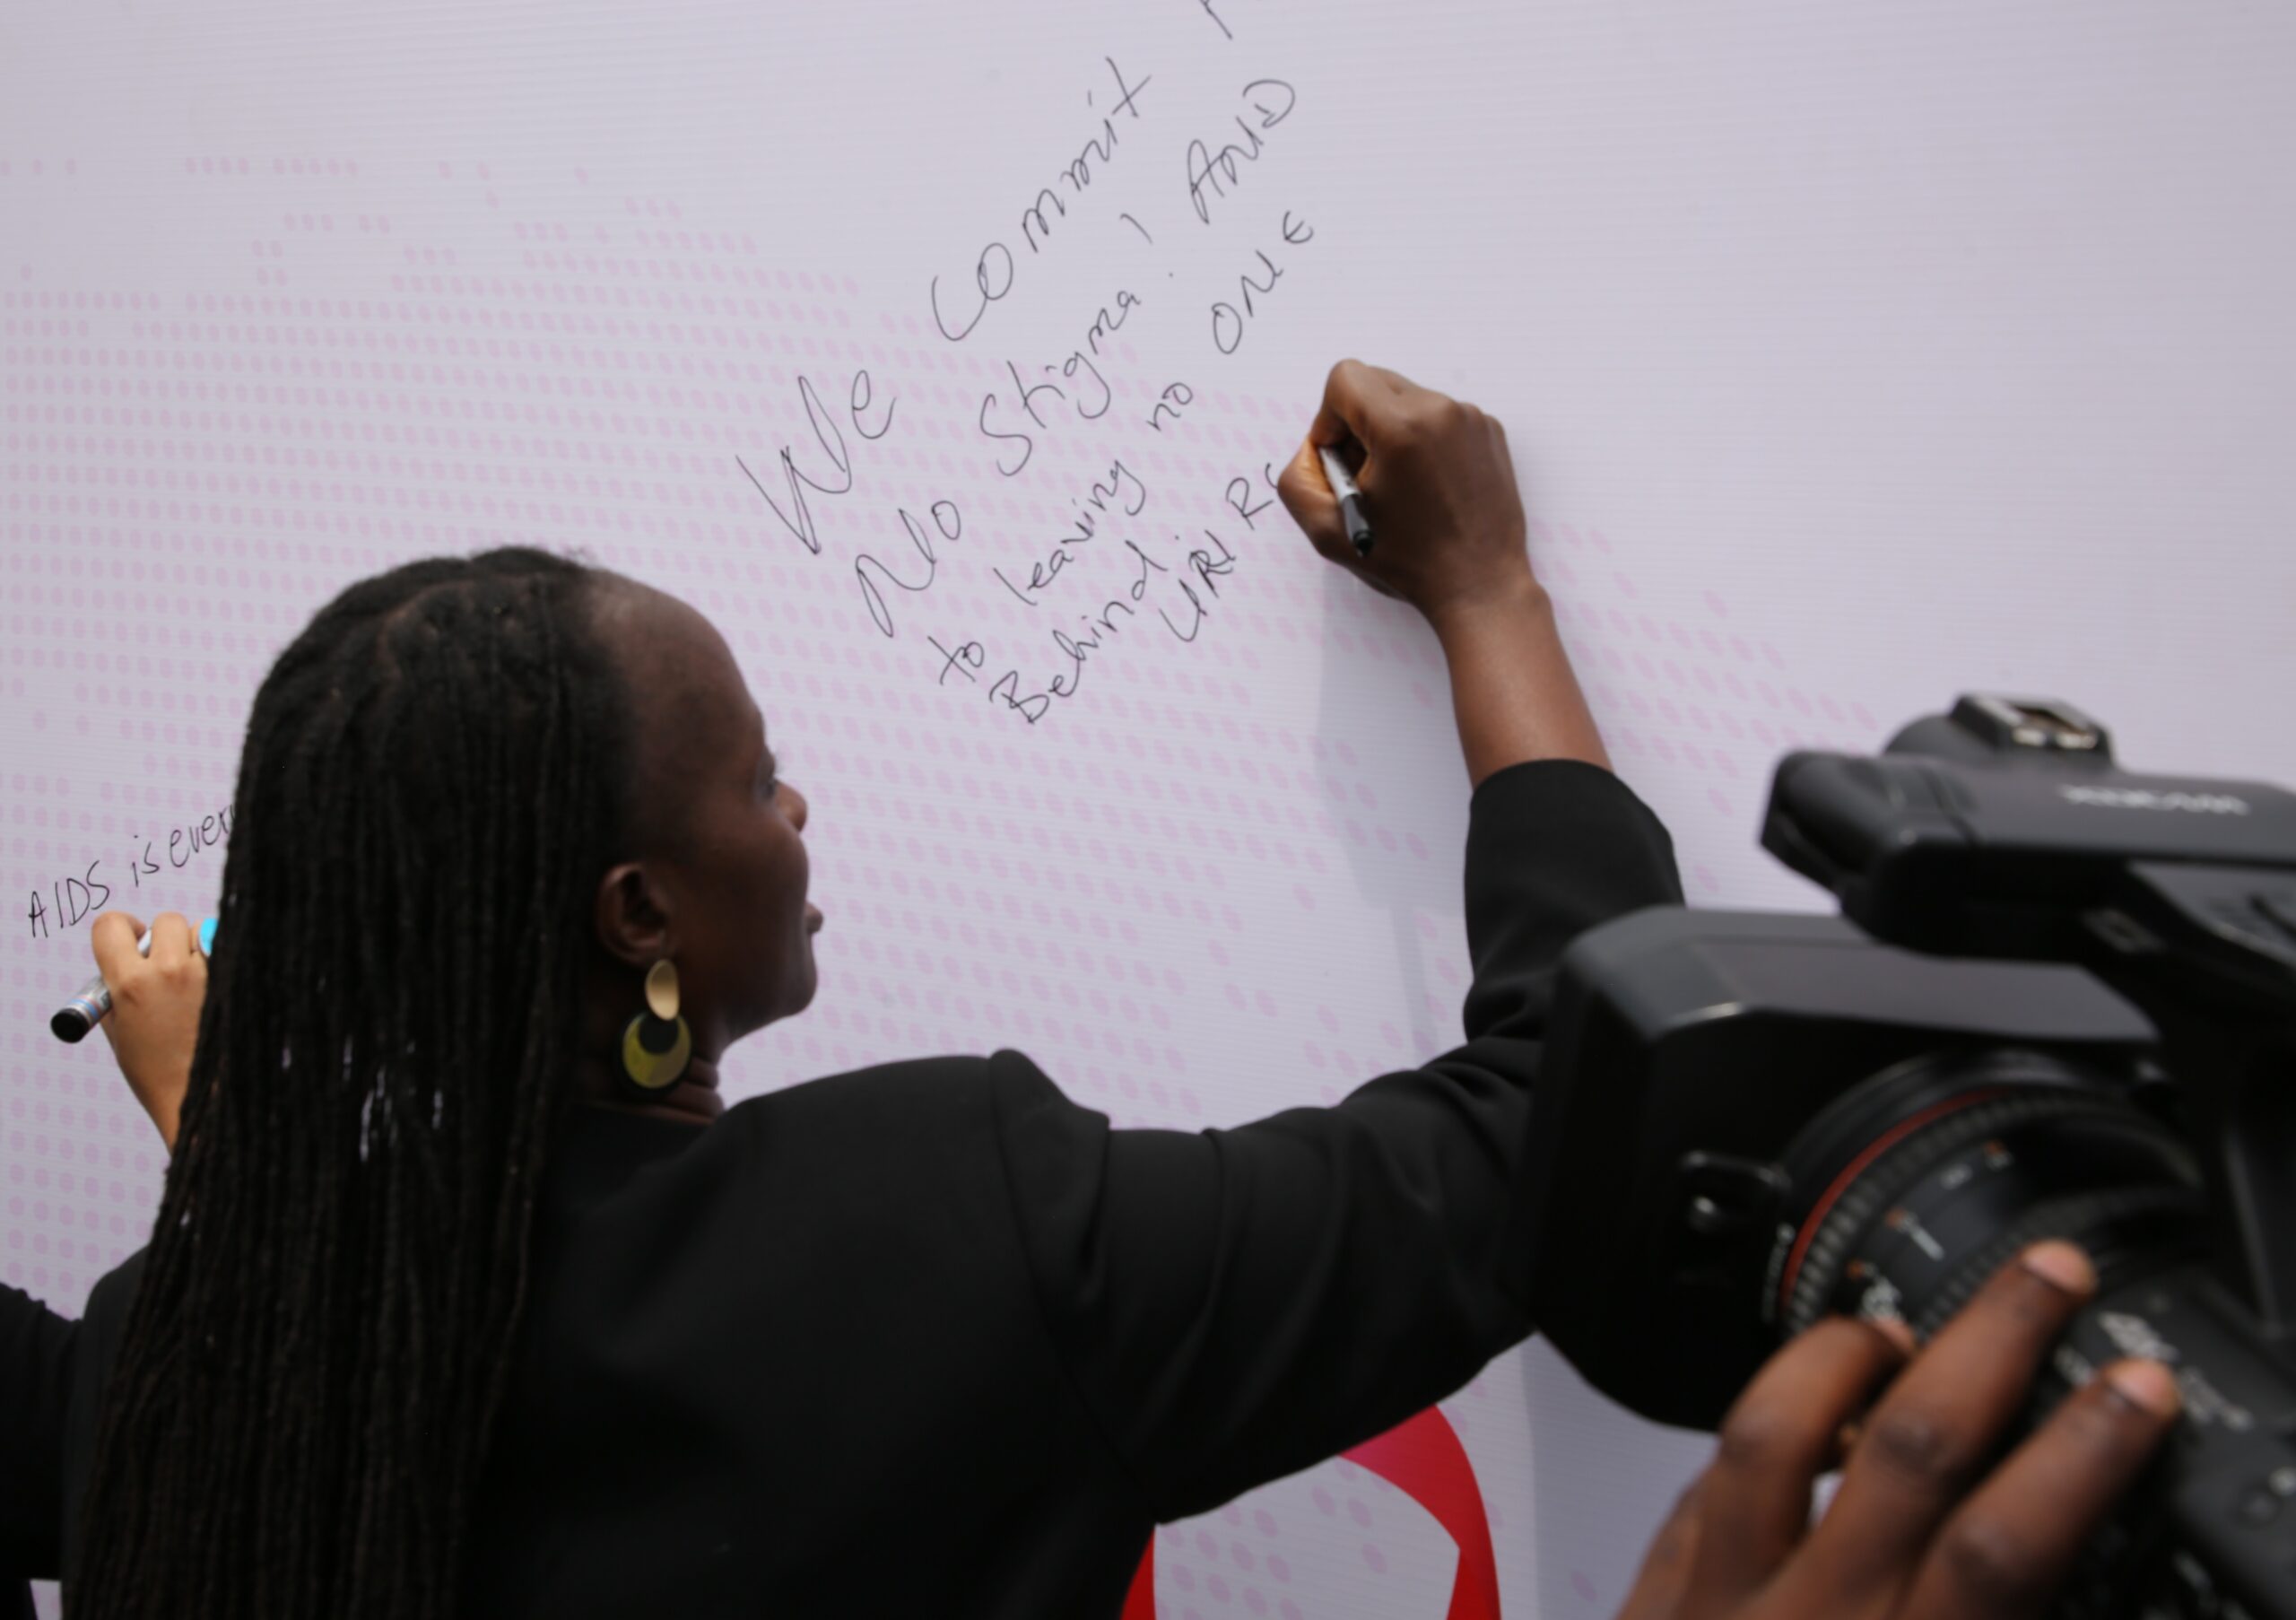 We commit
No Stigma, AND
to leaving no ONE
Behind.
AIDS is every